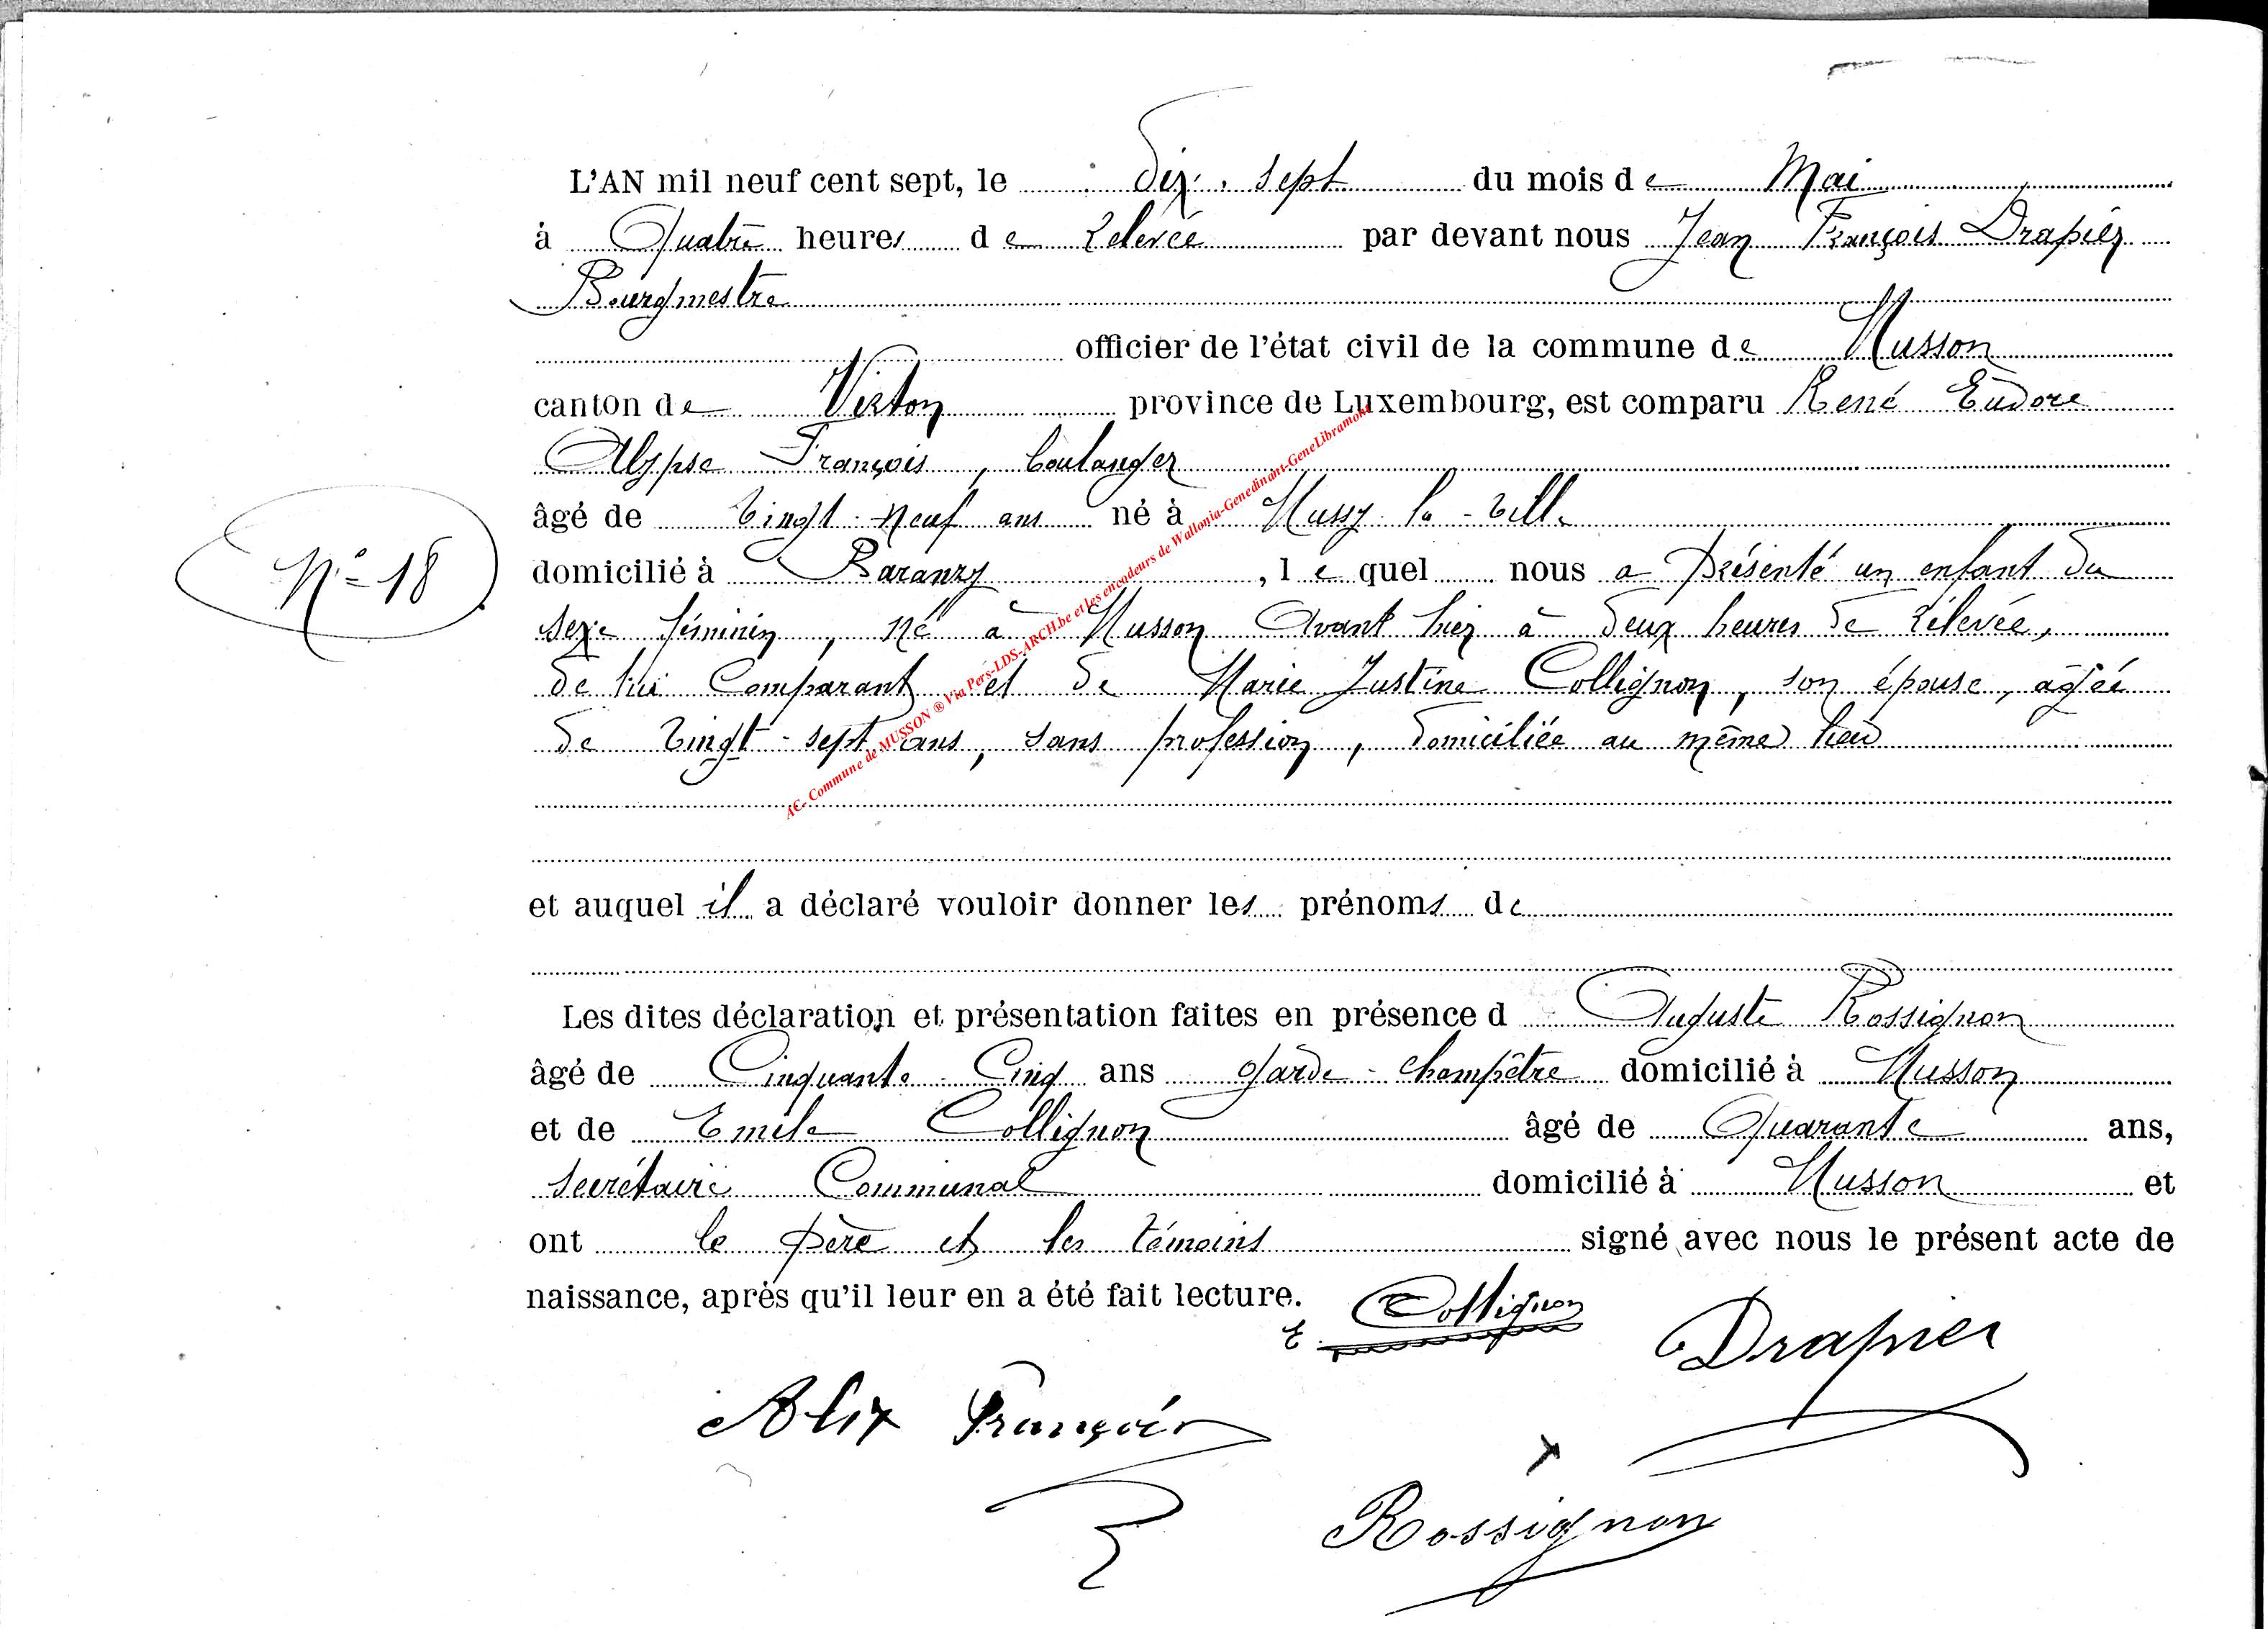 L'AN mil neuf cent sept, le dix-sept du mois de Mai
à Quatre heures de relevée par devant nous Jean François Drapier
Bourgmestre
officier de l'état civil de la commune de Musson
canton de Virton province de Luxembourg, est comparu René Eudore
François, boulanger
âgé de vingt-neuf ans né à Mussy-la-ville
N° 18
domicilié à Baranzy, lequel nous a présenté un enfant du
sexe féminin, né à Musson avant hier à deux heures de relevée,
de lui Comparant et de Marie Justine Collignon, son épouse, agée
de vingt-sept ans, sans profession, domiciliée au même lieu
AC- Commune de MUSSON ® Via Pers-LDS-ARCH.be et les encodeurs de Wallonia-Genedinant-GeneLibramont
et auquel il a déclaré vouloir donner les prénoms de
Les dites déclaration et présentation faites en présence d Auguste Rossignon
âgé de Cinquante-Cinq ans garde-champêtre domicilié à Musson
et de Emile Collignon âgé de Quarante ans,
secrétaire Communal domicilié à Musson et
ont le père et les témoins signé avec nous le présent acte de
naissance, après qu'il leur en a été fait lecture.
E. Collignon
Drapier
Alix François
Rossignon